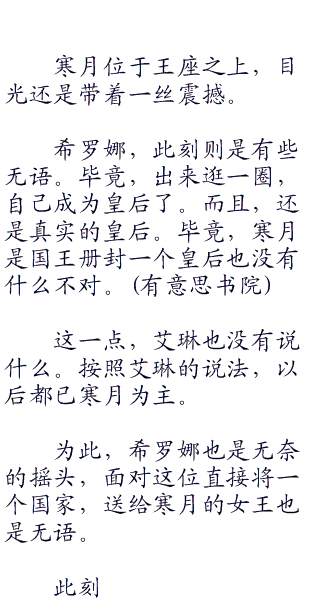 寒月位于王座之上，目
光还是带着一丝震撼。
希罗娜，此刻则是有些
无语。毕竟，出来逛一圈，
自己成为皇后了。而且，还
是真实的皇后。毕竟，寒月
是国王册封一个皇后也没有
什么不对。(有意思书院)
这一点，艾琳也没有说
什么。按照艾琳的说法，以
后都已寒月为主。
为此，希罗娜也是无奈
的摇头，面对这位直接将一
个国家，送给寒月的女王也
是无语。
此刻